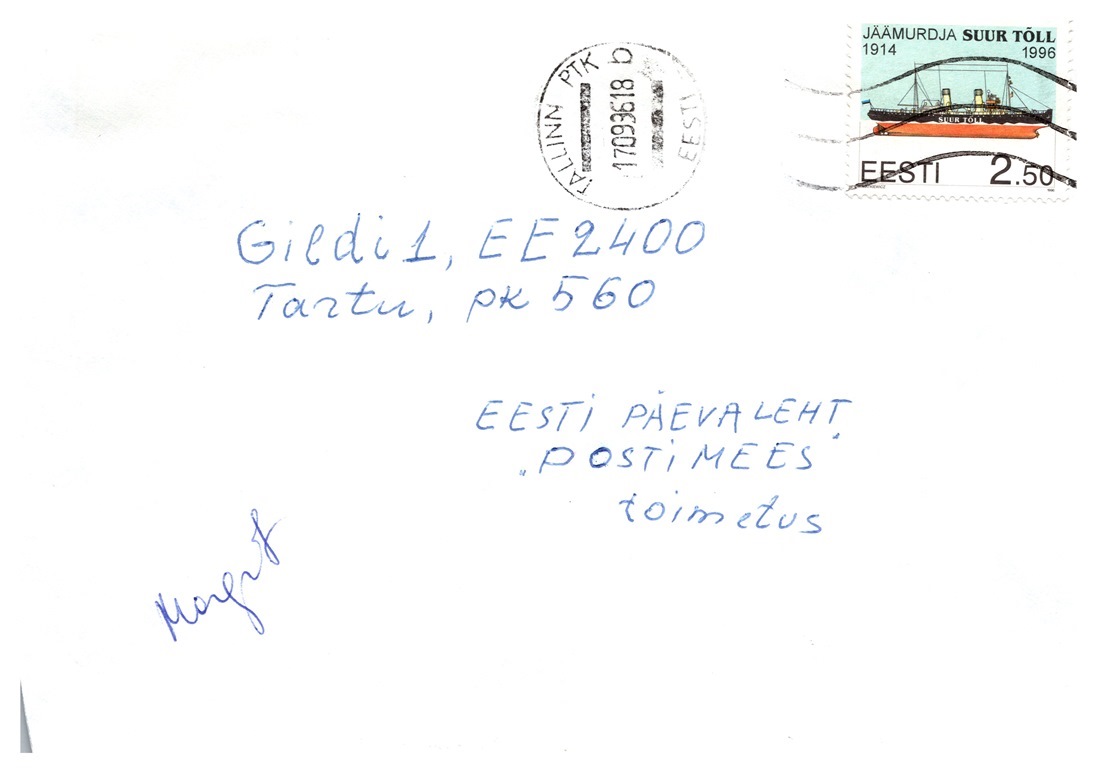 JÄÄMURDJA SUUR TÕLL
1914 1996
SUUR TÕLL
EESTI 2.50
TALLINN PTK b
17099618
EESTI
Gildi 1, EE2400
Tartu, pk 560
EESTI PÄEVALEHT
„POSTIMEES"
toimetus
Margit